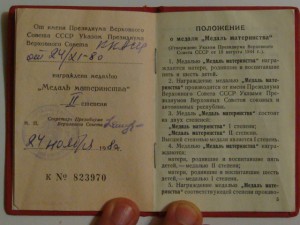 От имени Президиума Верховного
Совета СССР Указом Президиума
Верховного Совета
от 24/XI-80
награждена медалью
„Медаль материнства"
II степени
М. П.
Секретарь Президиума
Верховного Совета
24 ноября 1980 г.
К № 823970
ПОЛОЖЕНИЕ
о медали „Медаль материнства"
(Утверждено Указом Президиума Верховного
Совета СССР от 18 августа 1944 г.)
1. Медалью „Медаль материнства" награждаются
матери, родившие и воспитавшие
пять и шесть детей.
2. Награждение медалью „Медаль материнства"
производится от имени Президиума
Верховного Совета СССР Указами Президиумов
Верховных Советов союзных и автономных
республик.
3. Медаль „Медаль материнства" состоит
из двух степеней:
„Медаль материнства" I степени,
„Медаль материнства" II степени.
Высшей степенью медали является I степень.
4. Медалью „Медаль материнства" награждаются:
матери, родившие и воспитавшие пять
детей, — медалью II степени,
матери, родившие и воспитавшие шесть
детей, — медалью I степени.
5. Награждение медалью „Медаль материнства"
соответствующей степени производит-
3